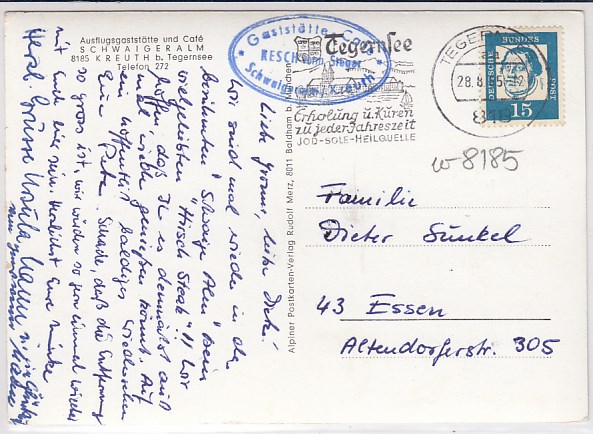 Ausflugsgaststätte und Café
SCHWAIGERALM
8185 KREUTH b. Tegernsee
Telefon 272
Gaststätte - Café
RESCH
Schwaigeralm / Kreuth
Tegernsee
Erholung u. Kuren
zu jeder Jahreszeit
JOD-SOLE-HEILQUELLE
TEGERN
28.8.
818
DEUTSCHE
BUNDES
POST
15
w-8185
Liebe
wir sind mal wieder in der
berühmten "Schwaiger Alm" beim
vielgeliebten "Hirsch Steak"!! Wir
hoffen daß Ihr es demnächst auch
mal wieder genießen könnt. Auf
ein hoffentlich baldiges Wiedersehen
Eure Schade, daß die Entfernung
so gross ist, wir würden so gern einmal wieder
mit Euch sein. Herzlichst Eure
Herzl. Grüsse Ursula
Alpiner Postkarten-Verlag Rudolf Merz, 8011 Baldham b. München
Familie
Dieter Sunkel
43 Essen
Altendorferstr. 305